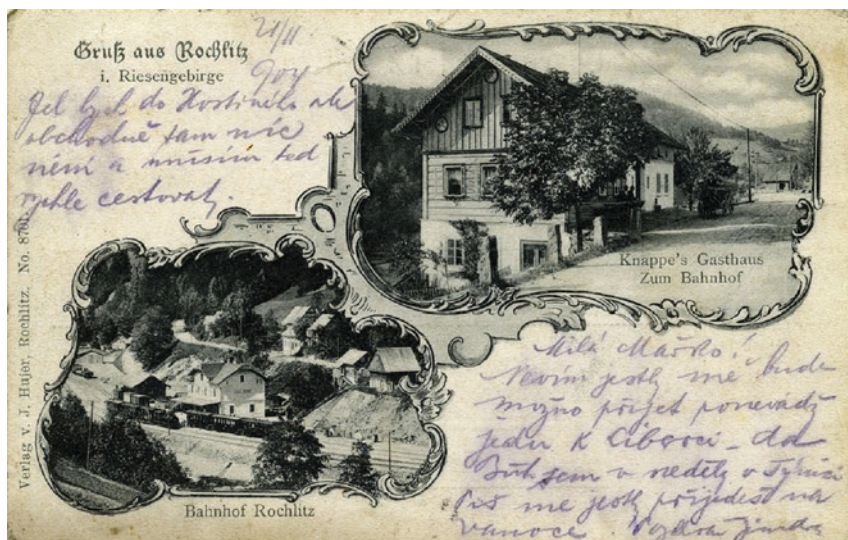 Gruß aus Rochlitz
i. Riesengebirge
21/11
904
Jel bych do Hostinného ale
obchodně tam nic
není a musím teď
rychle cestovat.
Knappe's Gasthaus
Zum Bahnhof
Verlag v. J. Hujer, Rochlitz, No. 8701.
Milá Mařko!
Nevím jestli mě bude
možno přijet poněvadž
jedu k Liberci - dá
Bůh jsem v neděly v
Piš mě jestly přijedeš na
vánoce.
Bahnhof Rochlitz